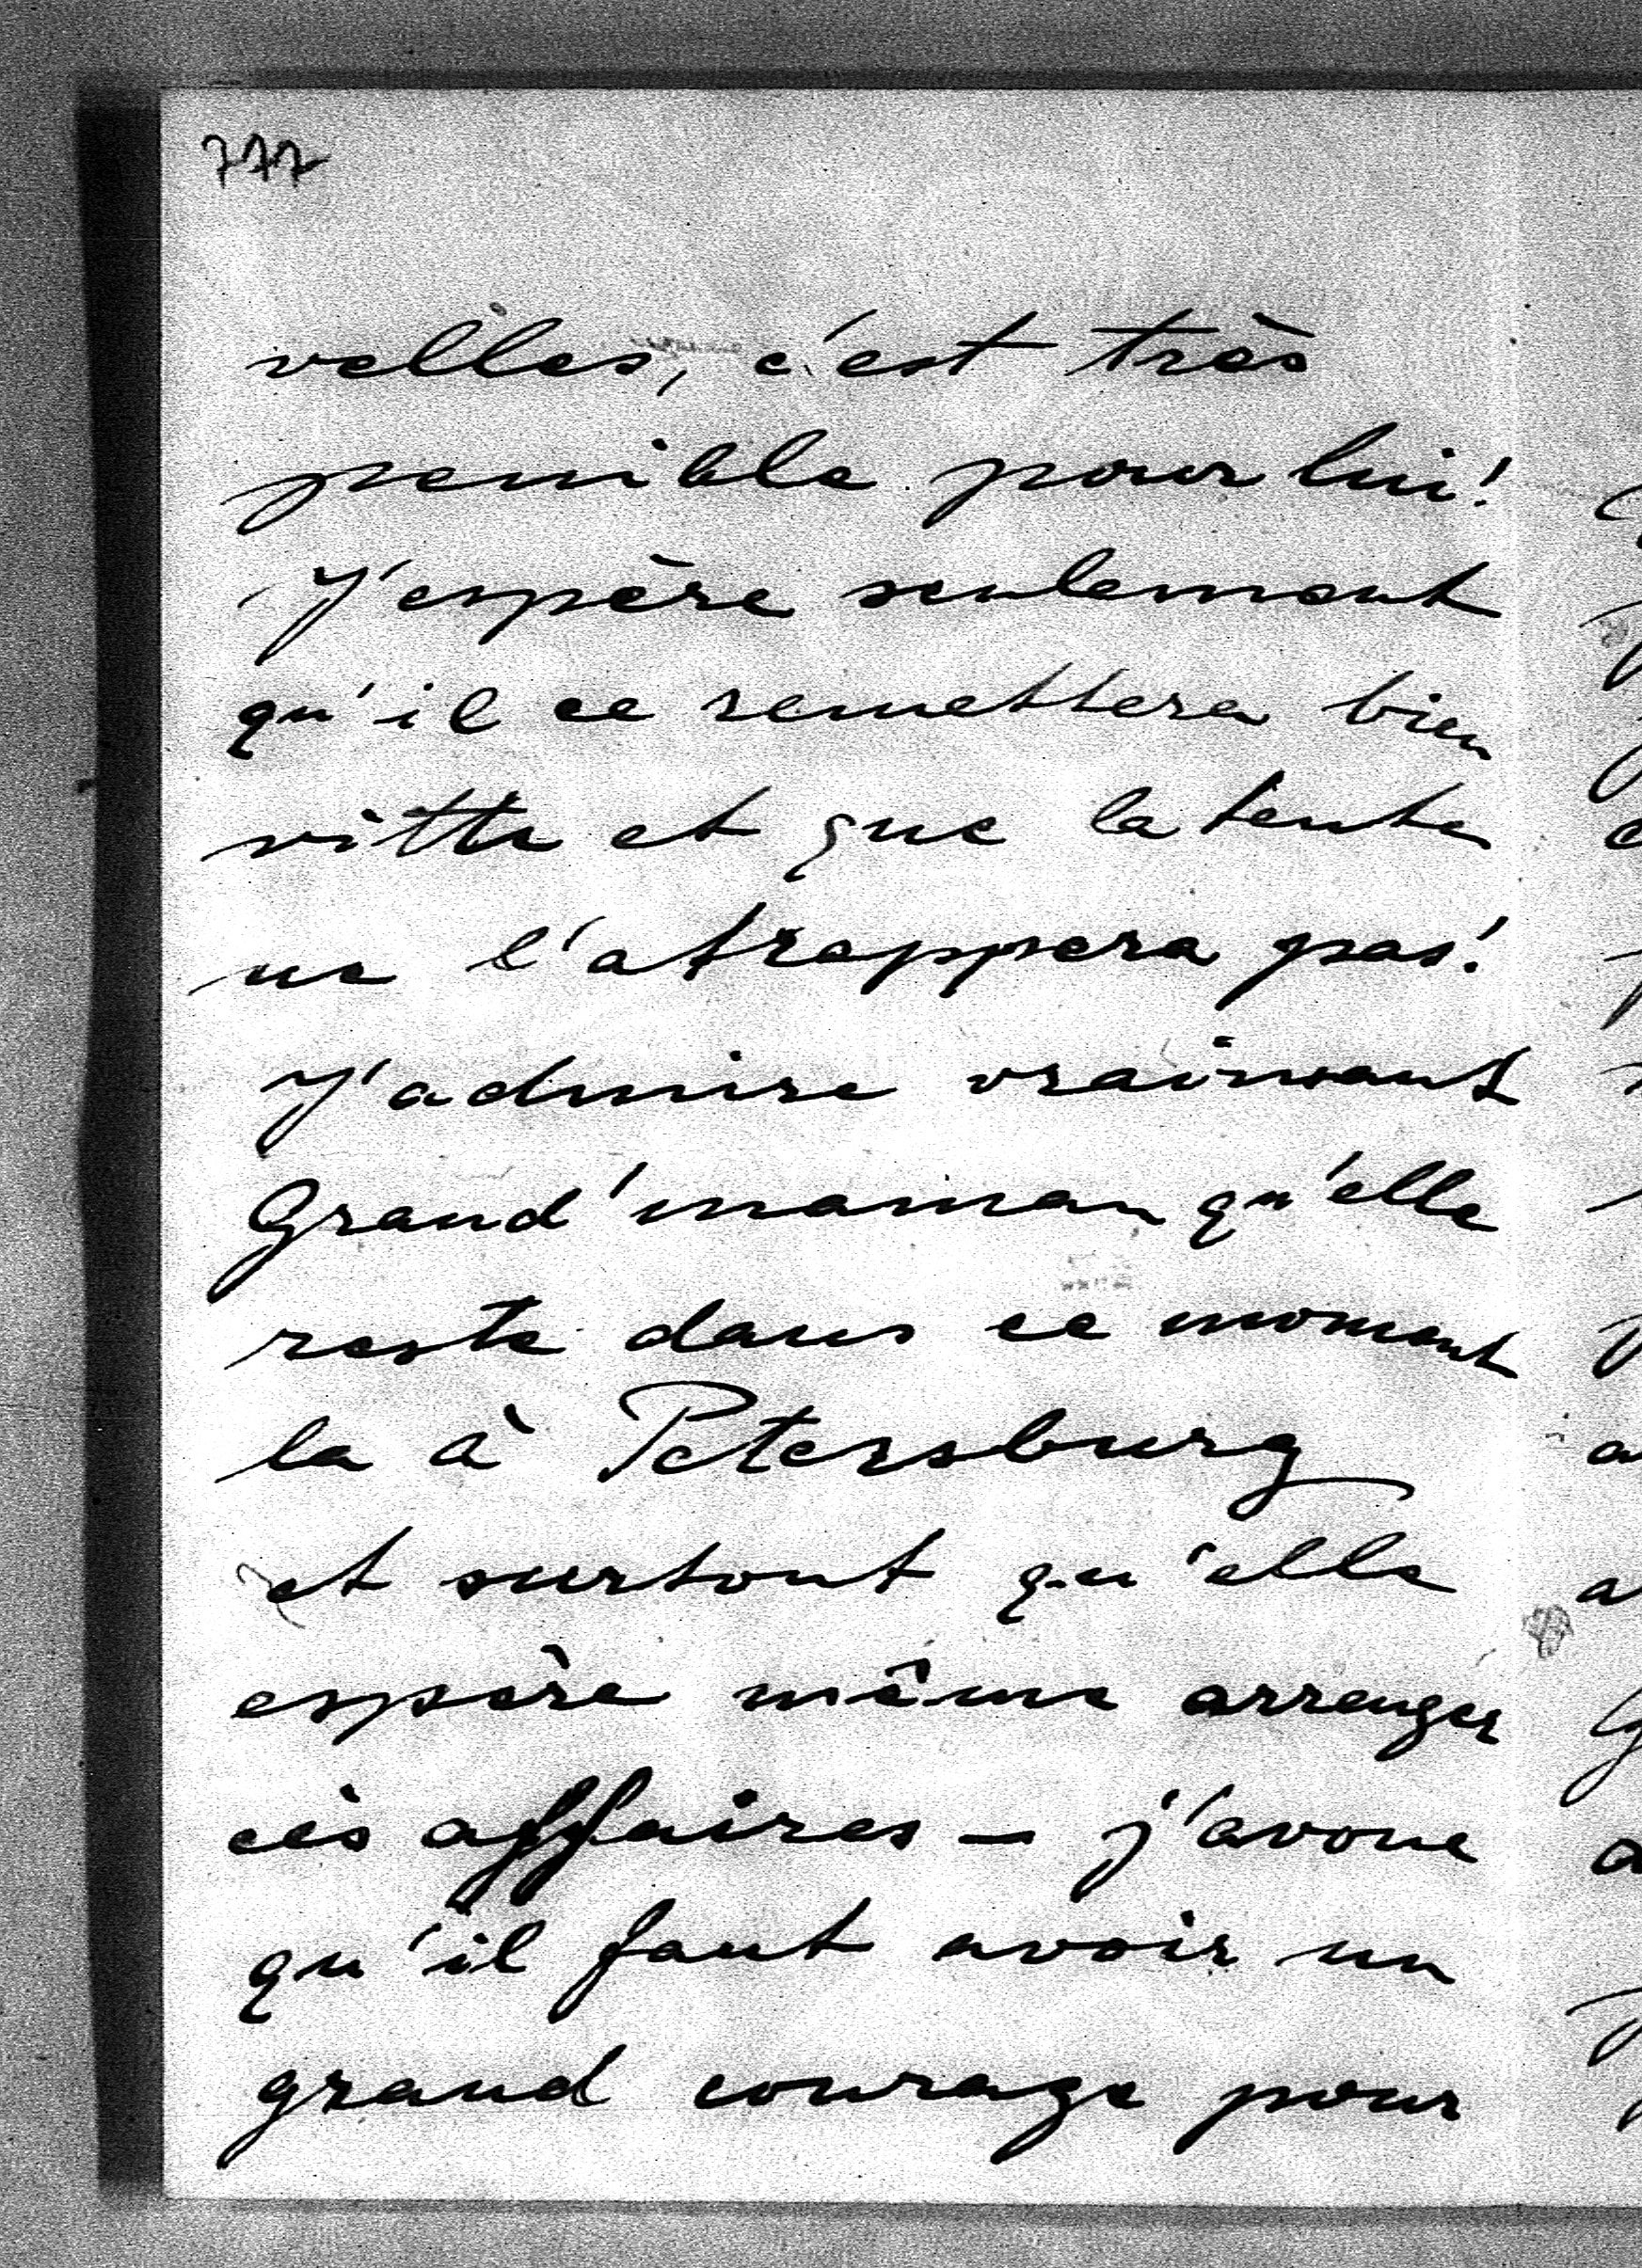 777
velles, c'est très
penible pour lui!
J'espère seulement
qu'il ce remettera bien
vitte et que la tente
ne l'atrappera pas!
J'admire vraiment
Grand'maman qu'elle
reste dans ce moment
la à Petersburg
et surtout qu'elle
espère même arranger
cès affaires — j'avoue
qu'il faut avoir un
grand courage pour